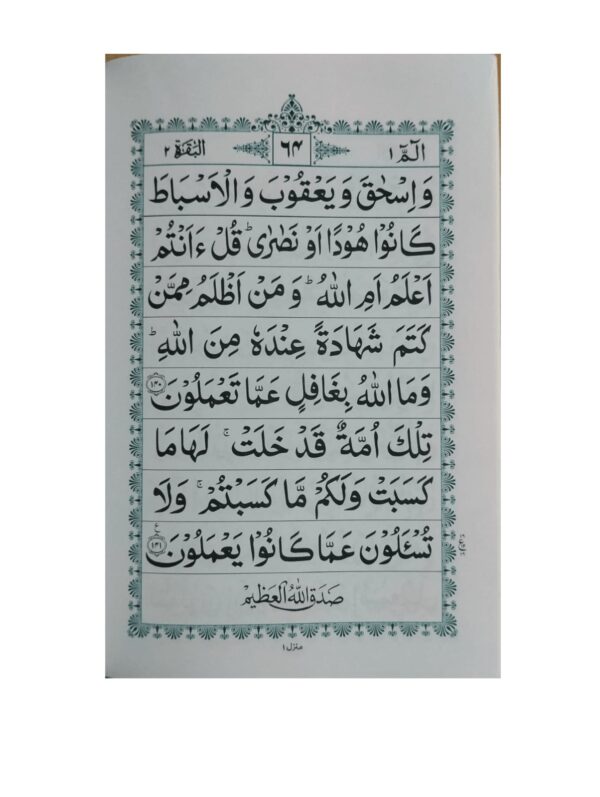 الٓمّٓ ١ ٦٤ البقرة ٢
وَ اِسْحٰقَ وَ يَعْقُوْبَ وَ الْاَسْبَاطَ
كَانُوْا هُوْدًا اَوْ نَصٰرٰى ؕ قُلْ ءَاَنْتُمْ
اَعْلَمُ اَمِ اللّٰهُ ؕ وَ مَنْ اَظْلَمُ مِمَّنْ
كَتَمَ شَهَادَةً عِنْدَهٗ مِنَ اللّٰهِ ؕ
وَمَا اللّٰهُ بِغَافِلٍ عَمَّا تَعْمَلُوْنَ ١٤٠
تِلْكَ اُمَّةٌ قَدْ خَلَتْ ۚ لَهَا مَا
كَسَبَتْ وَلَكُمْ مَّا كَسَبْتُمْ ۚ وَلَا
تُسْـَٔلُوْنَ عَمَّا كَانُوْا يَعْمَلُوْنَ ١٤١ ع
صَدَقَ اللّٰهُ الْعَظِيْم
منزل ١